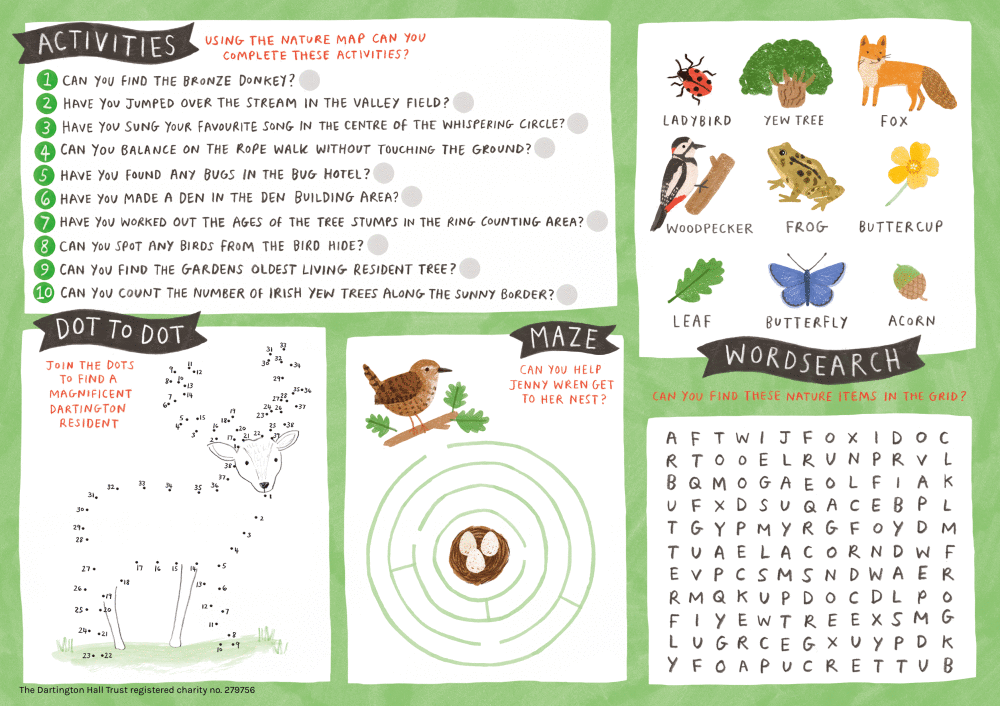 ACTIVITIES
USING THE NATURE MAP CAN YOU
COMPLETE THESE ACTIVITIES?
1 CAN YOU FIND THE BRONZE DONKEY?
2 HAVE YOU JUMPED OVER THE STREAM IN THE VALLEY FIELD?
3 HAVE YOU SUNG YOUR FAVOURITE SONG IN THE CENTRE OF THE WHISPERING CIRCLE?
4 CAN YOU BALANCE ON THE ROPE WALK WITHOUT TOUCHING THE GROUND?
5 HAVE YOU FOUND ANY BUGS IN THE BUG HOTEL?
6 HAVE YOU MADE A DEN IN THE DEN BUILDING AREA?
7 HAVE YOU WORKED OUT THE AGES OF THE TREE STUMPS IN THE RING COUNTING AREA?
8 CAN YOU SPOT ANY BIRDS FROM THE BIRD HIDE?
9 CAN YOU FIND THE GARDENS OLDEST LIVING RESIDENT TREE?
10 CAN YOU COUNT THE NUMBER OF IRISH YEW TREES ALONG THE SUNNY BORDER?
DOT TO DOT
JOIN THE DOTS
TO FIND A
MAGNIFICENT
DARTINGTON
RESIDENT
MAZE
CAN YOU HELP
JENNY WREN GET
TO HER NEST?
LADYBIRD YEW TREE FOX
WOODPECKER FROG BUTTERCUP
LEAF BUTTERFLY ACORN
WORDSEARCH
CAN YOU FIND THESE NATURE ITEMS IN THE GRID?
A F T W I J F O X I D O C
R T O O E L R U N P R V L
B Q M O G A E O L F I A K
U F X D S U Q A C E B P L
T G Y P M Y R G F O Y D M
T U A E L A C O R N D W F
E V P C S M S N D W A E R
R M Q K U P D O C D L P O
F I Y E W T R E E X S M G
L U G R C E G X U Y P D K
Y F O A P U C R E T T U B
The Dartington Hall Trust registered charity no. 279756